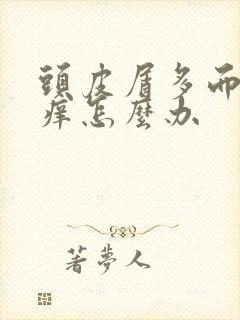 頭皮屑多而
癢怎麼办
著夢人